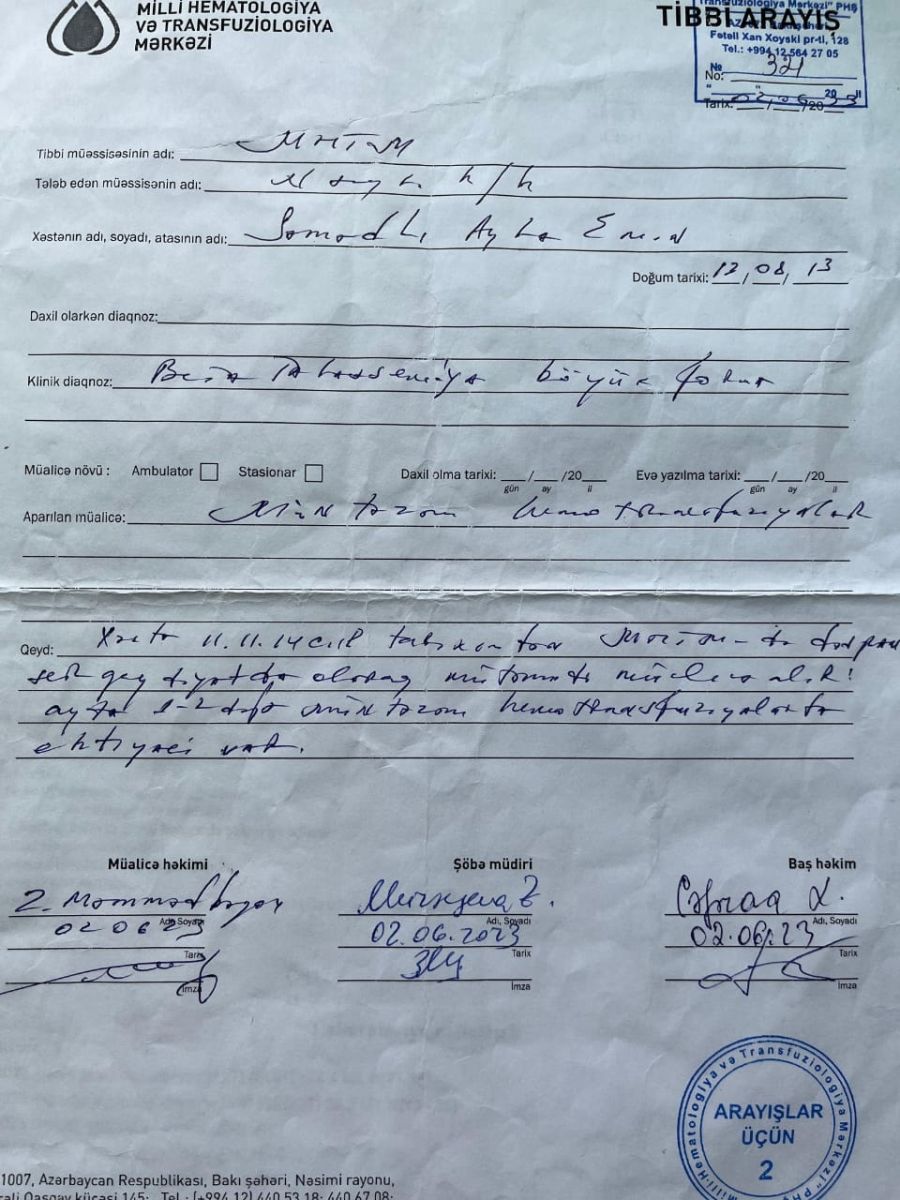 MİLLİ HEMATOLOGİYA
VƏ TRANSFUZİOLOGİYA
MƏRKƏZİ
TİBBİ ARAYIŞ
Transfuziologiya Mərkəzi" PHŞ
Fətəli Xan Xoyski pr-ti, 128
Tel.: +994 12 564 27 05
№ 321
No:
Tarix: 02/06/2023
Tibbi müəssisəsinin adı: MHTM
Tələb edən müəssisənin adı:
Xəstənin adı, soyadı, atasının adı: Səmədli Ayla Emin
Doğum tarixi: 12/08/13
Daxil olarkən diaqnoz:
Klinik diaqnoz: Beta Talassemiya böyük forma
Müalicə növü: Ambulator Stasionar Daxil olma tarixi: __/__/20__ Evə yazılma tarixi: __/__/20__
gün ay il gün ay il
Aparılan müalicə: Müntəzəm hemotransfuziyalar
Qeyd: Xəstə 11.11.14 cü il tarixindən
qeydiyyatda olaraq mütəmadi müalicə alır.
ayda 1-2 dəfə müntəzəm hemotransfuziyalara
ehtiyacı var.
Müalicə həkimi Şöbə müdiri Baş həkim
Z. Məmmədbəyov
Adı, Soyadı Adı, Soyadı Adı, Soyadı
02 06 23 02.06.2023 02.06.23
Tarix Tarix Tarix
İmza İmza İmza
Milli Hematologiya və Transfuziologiya Mərkəzi"
ARAYIŞLAR
ÜÇÜN
2
1007, Azərbaycan Respublikası, Bakı şəhəri, Nəsimi rayonu,
Qaşqay küçəsi 145; Tel.: (+994 12) 440 53 18; 440 67 08;